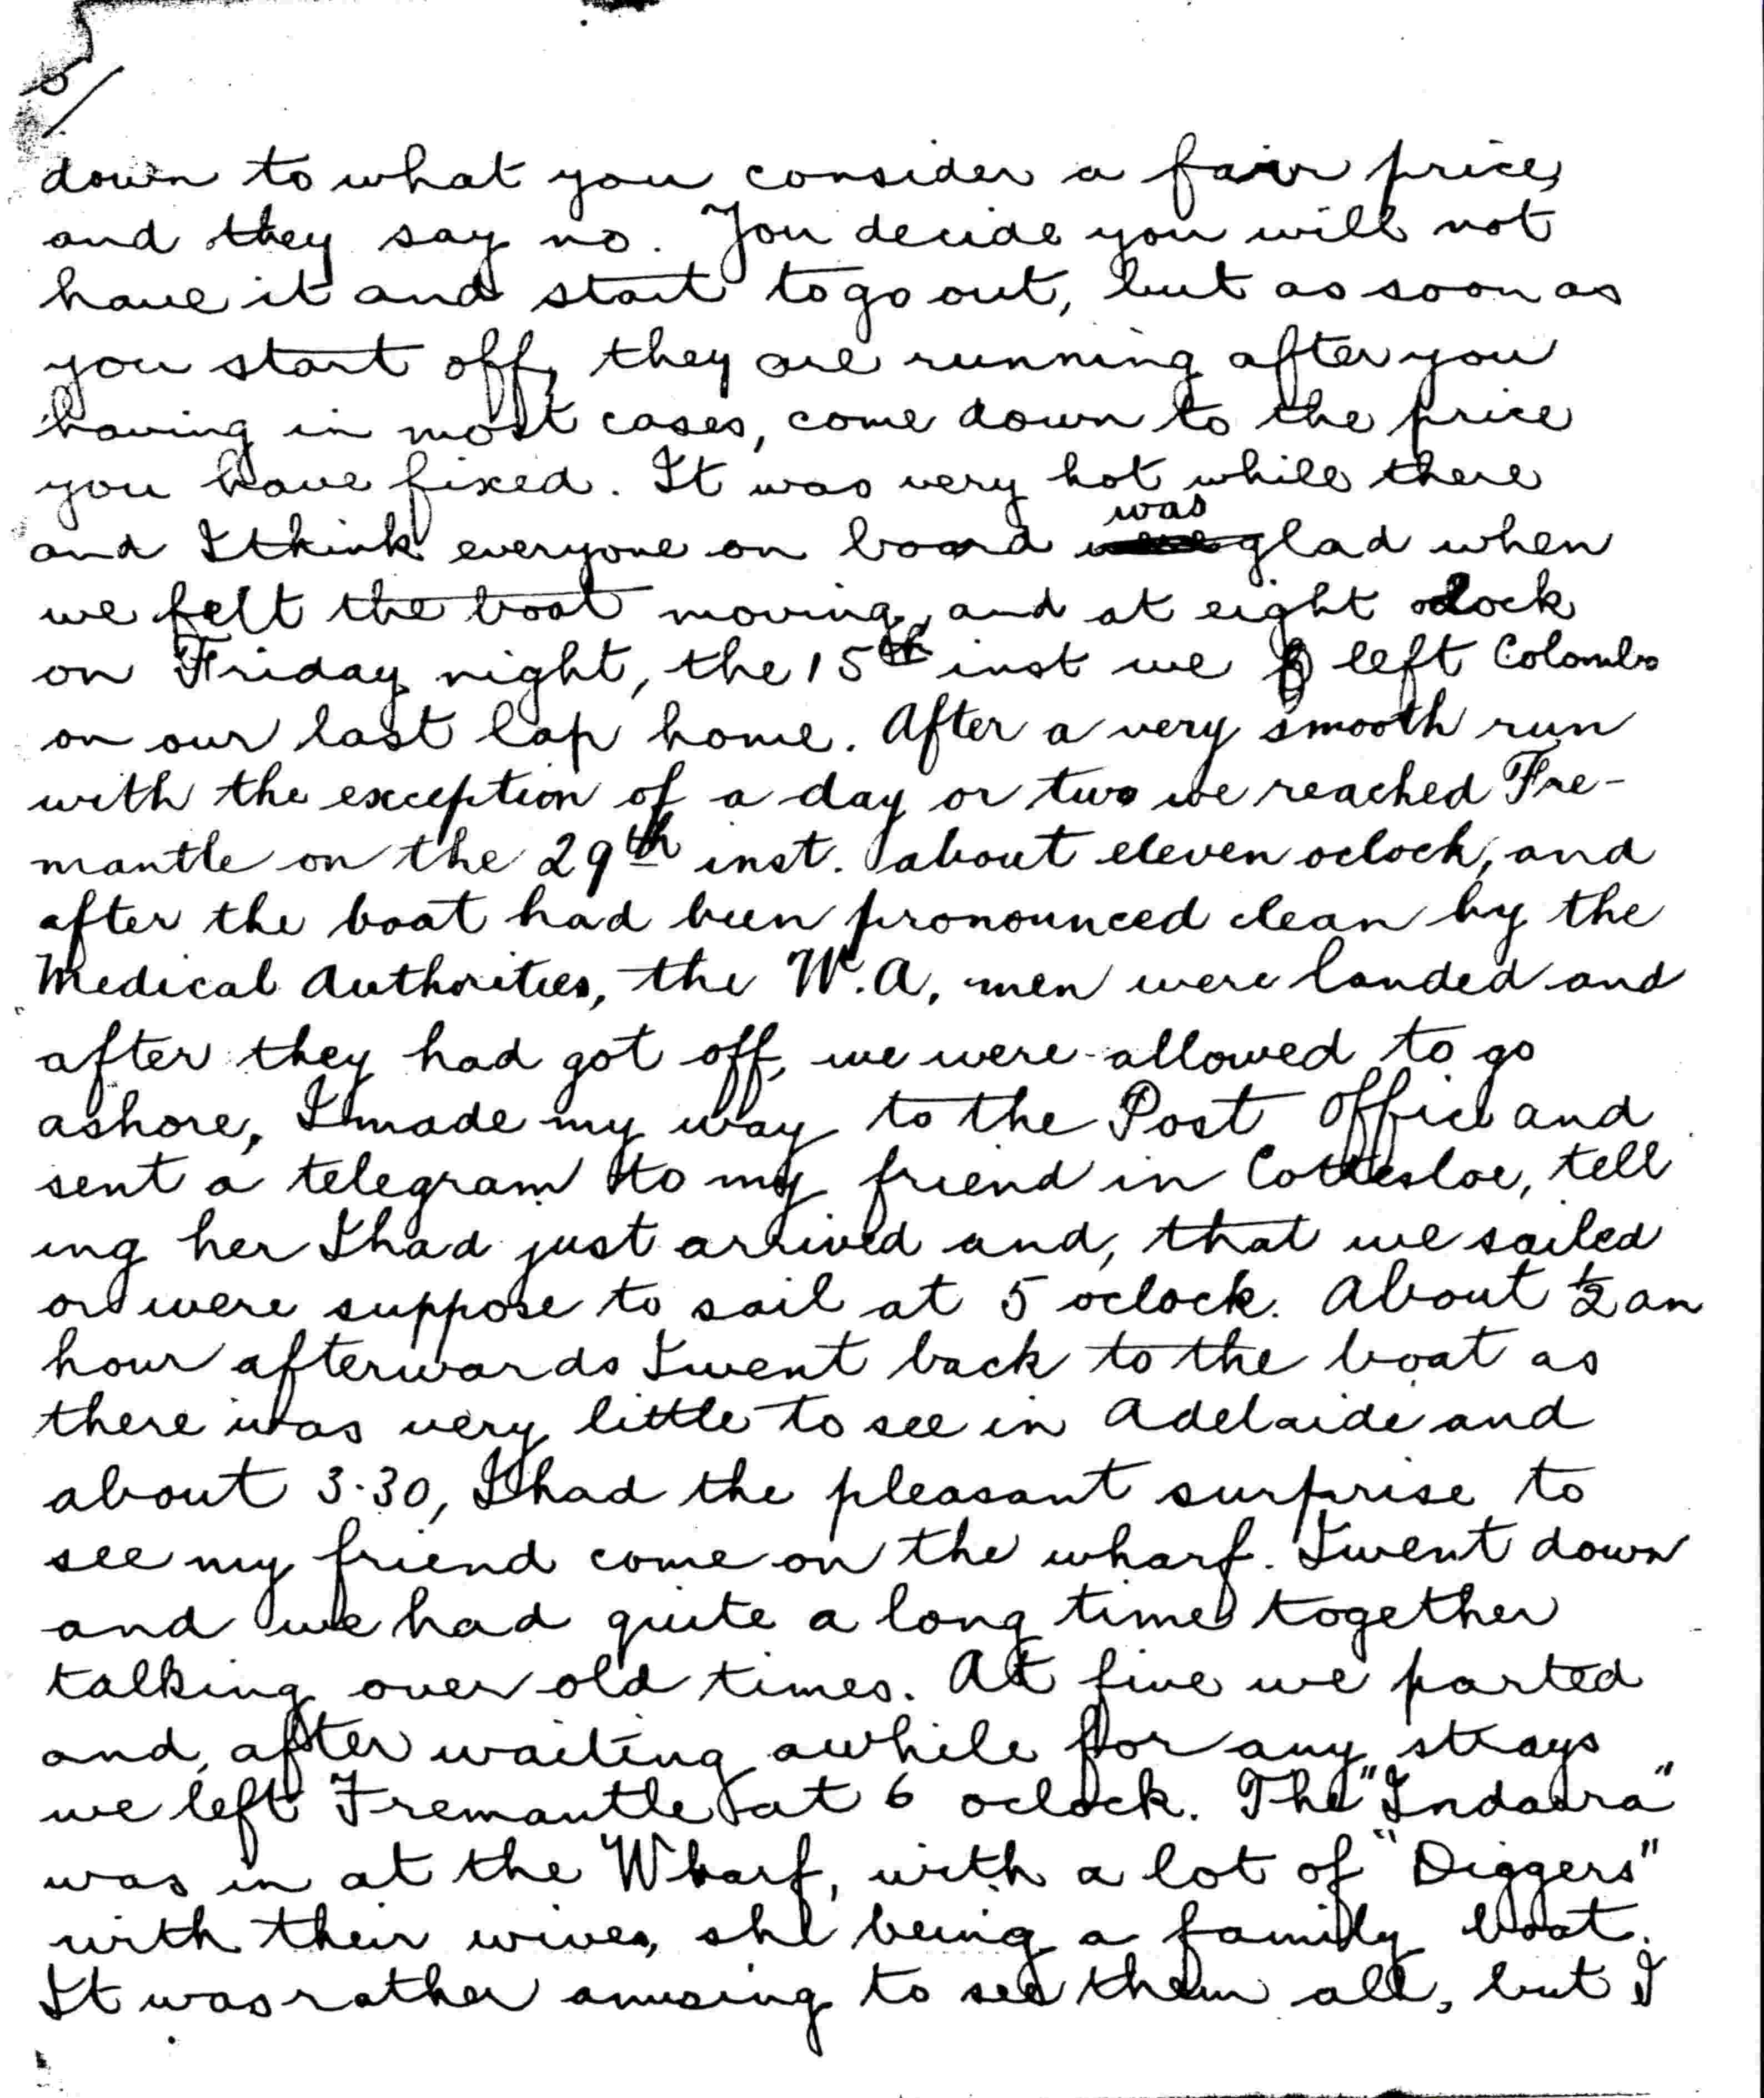 down to what you consider a fair price,
and they say no. You decide you will not
have it and start to go out, but as soon as
you start off, they are running after you
having in most cases, come down to the price
you have fixed. It was very hot while there
was
and I think everyone on board were glad when
we felt the boat moving, and at eight oclock
on Friday night, the 15th inst we left Colombo
on our last lap home. After a very smooth run
with the exception of a day or two we reached Fre-
mantle on the 29th inst. about eleven oclock, and
after the boat had been pronounced clean by the
Medical Authorities, the W.A. men were landed and
after they had got off, we were allowed to go
ashore, I made my way to the Post Office and
sent a telegram to my friend in Cottesloe, tell
ing her I had just arrived and, that we sailed
or were suppose to sail at 5 oclock. About ½ an
hour afterwards I went back to the boat as
there was very little to see in Adelaide and
about 3.30, I had the pleasant surprise to
see my friend come on the wharf. I went down
and we had quite a long time together
talking over old times. At five we parted
and, after waiting awhile for any strays
we left Fremantle at 6 oclock. The "Indarra"
was in at the Wharf, with a lot of "Diggers"
with their wives, she being a family boat.
It was rather amusing to see them all, but I